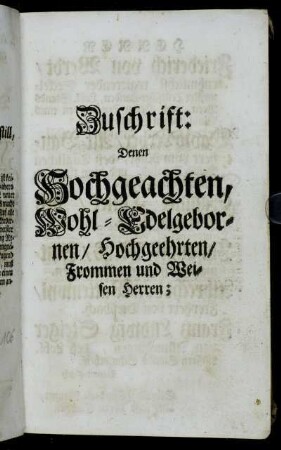 Zuschrift:
Denen
Hochgeachten,
Wohl-Edelgebor-
nen/ Hochgeehrten/
Frommen und Wei-
sen Herren;
still,